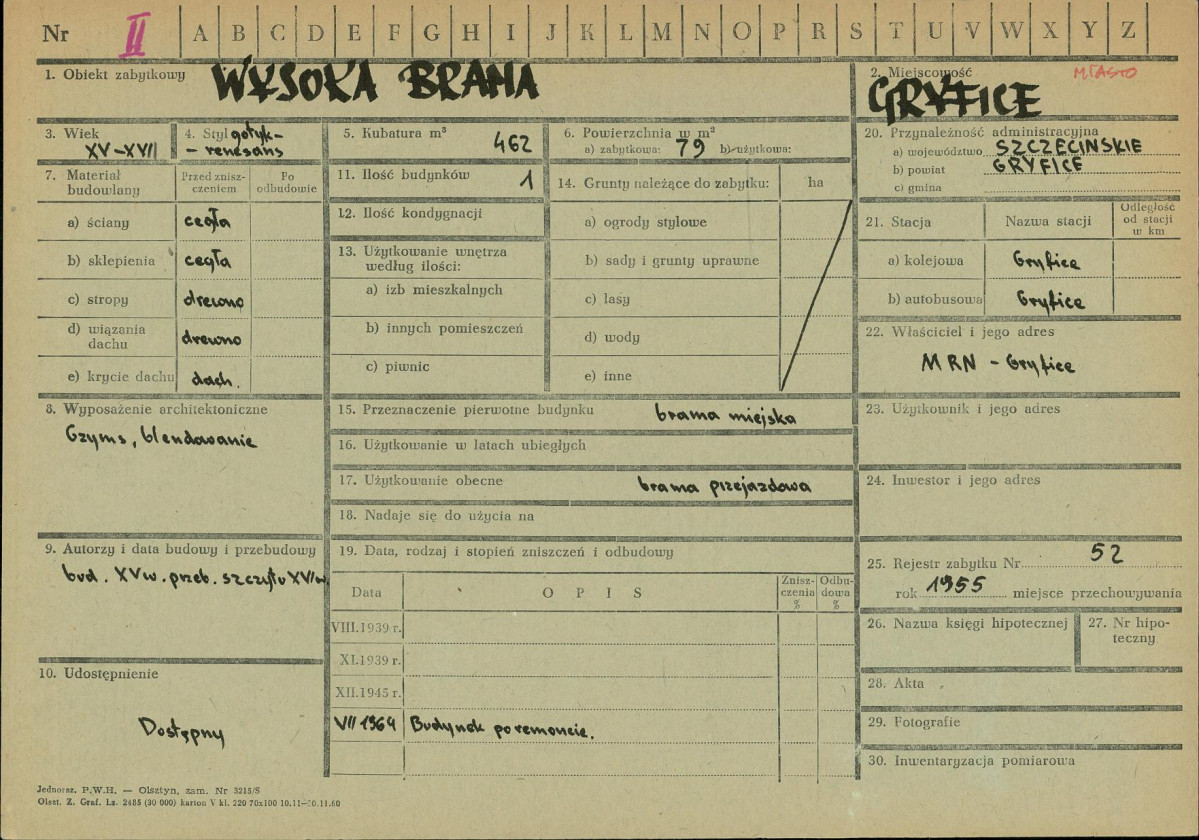 Nr II A B C D E F G H I J K L M N O P R S T U V W X Y Z
1. Obiekt zabytkowy WYSOKA BRAMA
2. Miejscowość MIASTO
GRYFICE
3. Wiek
XV-XVII
4. Styl gotyk-
- renesans
5. Kubatura m³ 462
6. Powierzchnia w m²
a) zabytkowa: 79 b) użytkowa:
7. Materiał budowlany
Przed znisz-
czeniem
Po
odbudowie
a) ściany cegła
b) sklepienia cegła
c) stropy drewno
d) wiązania
dachu drewno
e) krycie dachu dach.
8. Wyposażenie architektoniczne
Gzyms, blendowanie
9. Autorzy i data budowy i przebudowy
bud. XVw. przeb. szczytu XVIw.
10. Udostępnienie
Dostępny
11. Ilość budynków 1
12. Ilość kondygnacji
13. Użytkowanie wnętrza
według ilości:
a) izb mieszkalnych
b) innych pomieszczeń
c) piwnic
14. Grunty należące do zabytku: ha
a) ogrody stylowe
b) sady i grunty uprawne
c) lasy
d) wody
e) inne
15. Przeznaczenie pierwotne budynku brama miejska
16. Użytkowanie w latach ubiegłych
17. Użytkowanie obecne brama przejazdowa
18. Nadaje się do użycia na
19. Data, rodzaj i stopień zniszczeń i odbudowy
Data
O P I S
Znisz-
czenia
%
Odbu-
dowa
%
VIII.1939 r.
XI.1939 r.
XII.1945 r.
VII 1964 Budynek po remoncie.
20. Przynależność administracyjna
a) województwo SZCZECINSKIE
b) powiat GRYFICE
c) gmina
21. Stacja
Nazwa stacji
Odległość
od stacji
w km
a) kolejowa Gryfice
b) autobusowa Gryfice
22. Właściciel i jego adres
MRN - Gryfice
23. Użytkownik i jego adres
24. Inwestor i jego adres
25. Rejestr zabytku Nr 52
rok 1955 miejsce przechowywania
26. Nazwa księgi hipotecznej
27. Nr hipo-
teczny
28. Akta
29. Fotografie
30. Inwentaryzacja pomiarowa
Jednoraz. P.W.H. — Olsztyn, zam. Nr 3215/S
Olszt. Z. Graf. Lz. 2485 (30 000) karton V kl. 220 70x100 10.11—30.11.60